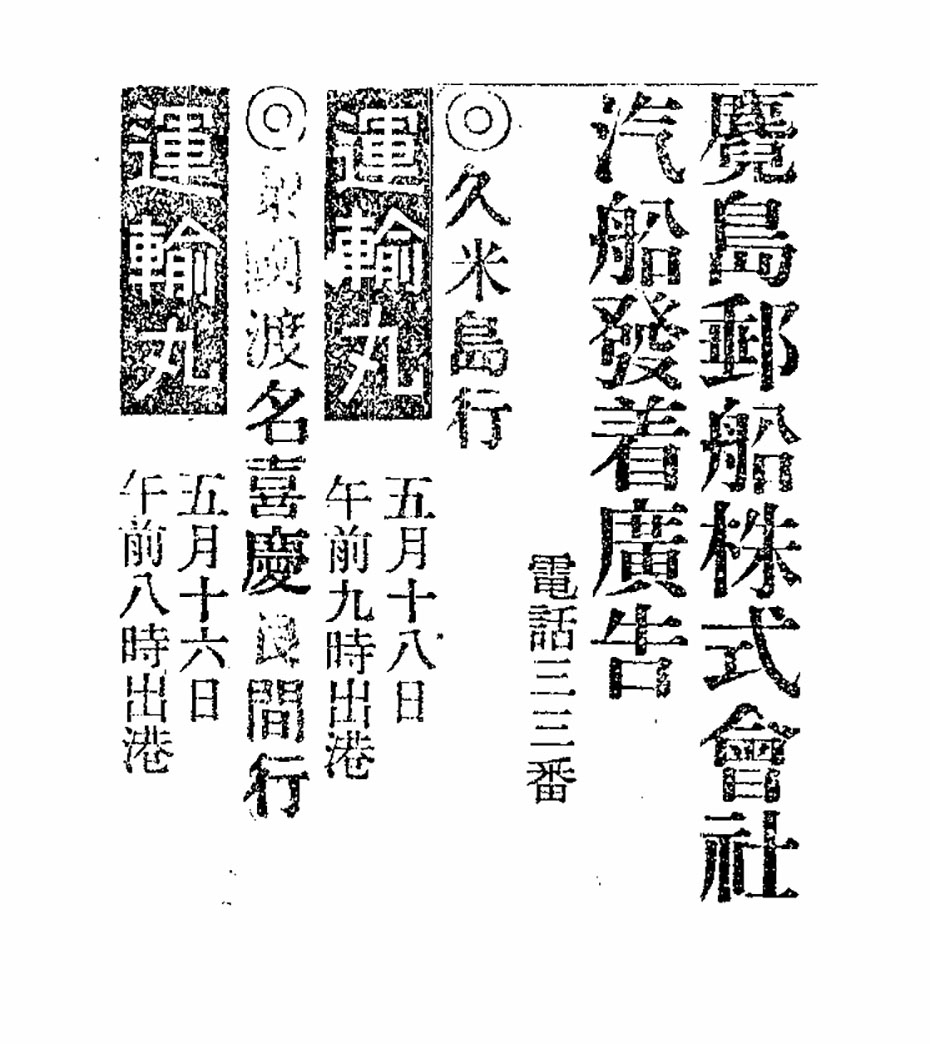 麑島郵船株式會社
汽船發着廣告
電話三三番
◎久米島行
運輸丸
五月十八日
午前九時出港
◎粟國渡名喜慶良間行
運輸丸
五月十六日
午前八時出港